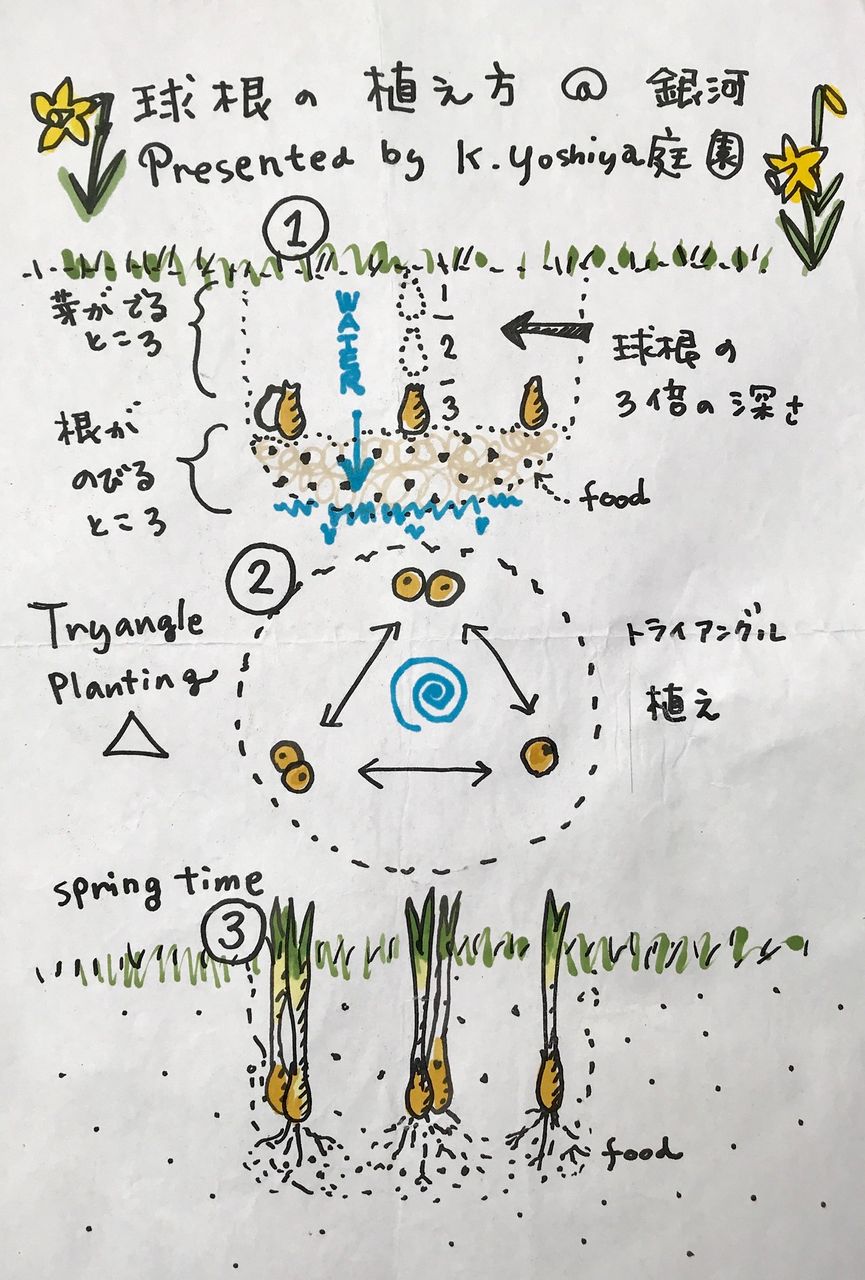 球根の 植え方 @ 銀河
Presented by K.Yoshiya庭園
①
芽がでる
ところ
WATER
1
2
3
球根の
3倍の深さ
根が
のびる
ところ
food
②
Tryangle
Planting
トライアングル
植え
spring time
③
food